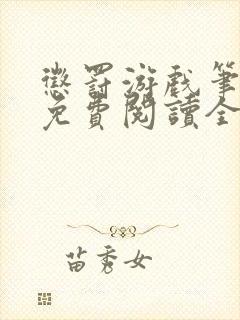 懲罰游戲筆
免費閱讀全
苗秀女